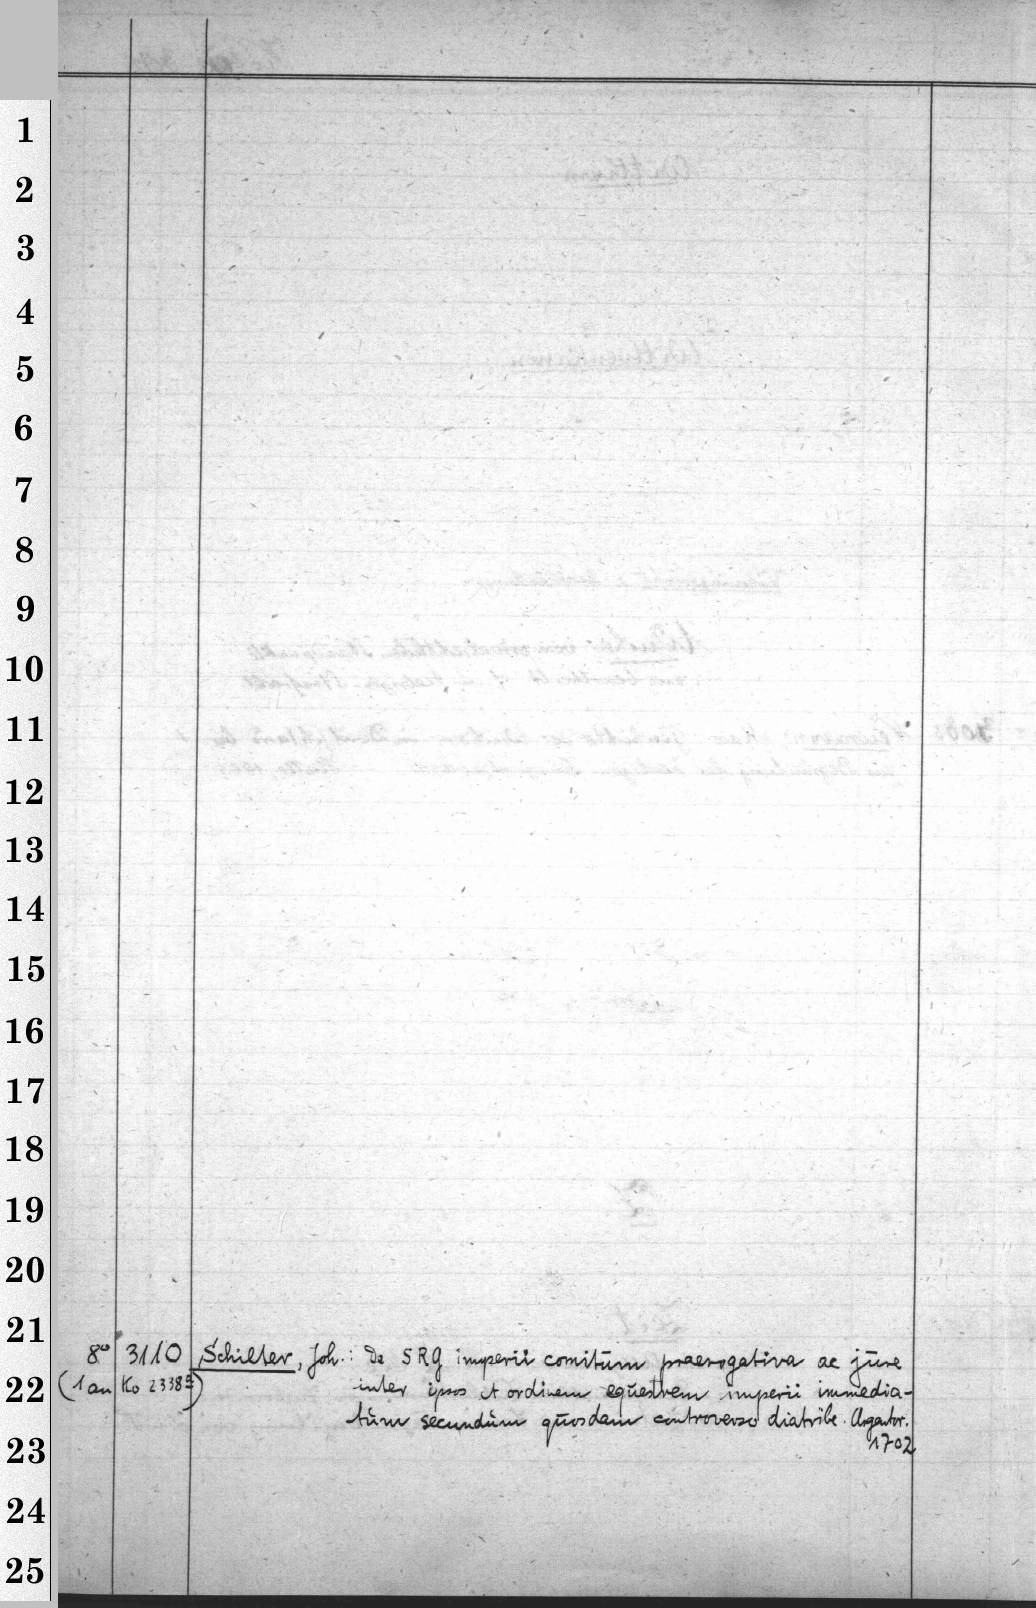 1
2
3
4
5
6
7
8
9
10
11
12
13
14
15
16
17
18
19
20
21
8° 3110 Schilter, Joh.: De SRG imperii comitum praerogativa ac jure
22
(1 an Ko 2338a) inter ipsos et ordinem equestrem imperii immedia-
tum secundum quosdam controverso diatribe. Argentor.
23
1702
24
25